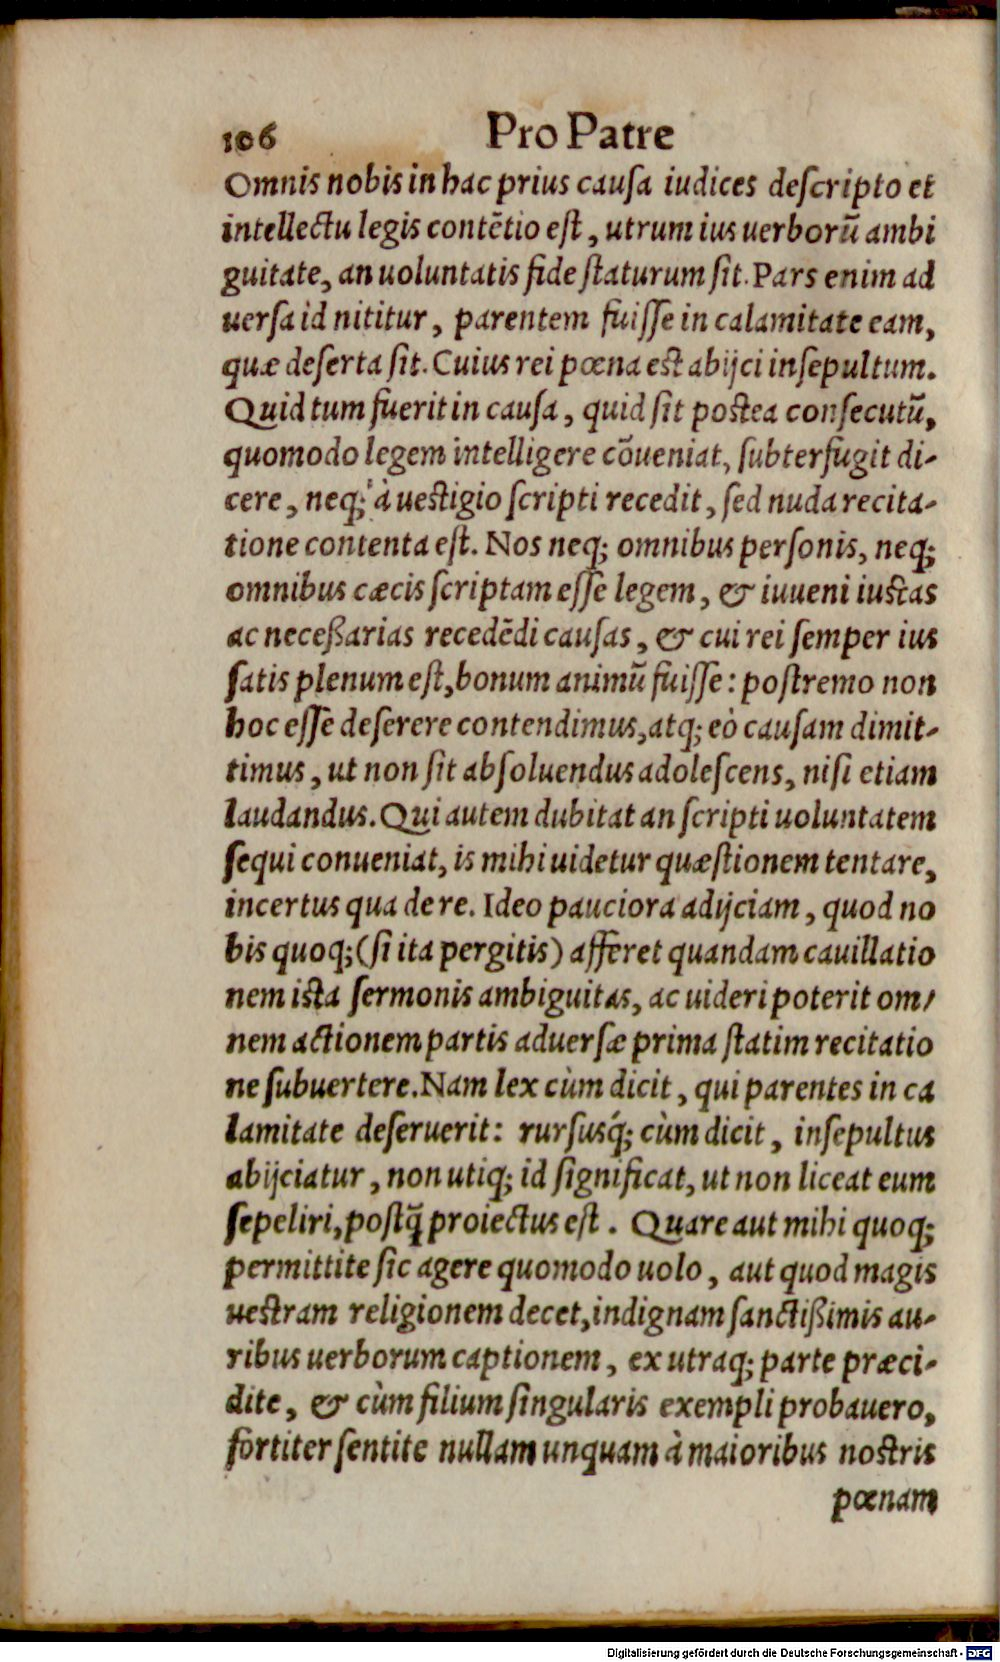 106 Pro Patre
Omnis nobis in hac prius causa iudices descripto et
intellectu legis contētio est, utrum ius uerborū ambi
guitate, an uoluntatis fide staturum sit. Pars enim ad
uersa id nititur, parentem fuisse in calamitate eam,
quæ deserta sit. Cuius rei pœna est abijci insepultum.
Quid tum fuerit in causa, quid sit postea consecutū,
quomodo legem intelligere cōueniat, subterfugit di-
cere, neq; à uestigio scripti recedit, sed nuda recita-
tione contenta est. Nos neq; omnibus personis, neq;
omnibus cæcis scriptam esse legem, & iuueni iustas
ac neceßarias recedēdi causas, & cui rei semper ius
satis plenum est, bonum animū fuisse: postremo non
hoc esse deserere contendimus, atq; eò causam dimit-
timus, ut non sit absoluendus adolescens, nisi etiam
laudandus. Qui autem dubitat an scripti uoluntatem
sequi conueniat, is mihi uidetur quæstionem tentare,
incertus qua de re. Ideo pauciora adijciam, quod no
bis quoq; (si ita pergitis) afferet quandam cauillatio
nem ista sermonis ambiguitas, ac uideri poterit om-
nem actionem partis aduersæ prima statim recitatio
ne subuertere. Nam lex cùm dicit, qui parentes in ca
lamitate deseruerit: rursusq́; cùm dicit, insepultus
abijciatur, non utiq; id significat, ut non liceat eum
sepeliri, postq̃ proiectus est. Quare aut mihi quoq;
permittite sic agere quomodo uolo, aut quod magis
uestram religionem decet, indignam sanctißimis au-
ribus uerborum captionem, ex utraq; parte præci-
dite, & cùm filium singularis exempli probauero,
fortiter sentite nullam unquam à maioribus nostris
pœnam
Digitalisierung gefördert durch die Deutsche Forschungsgemeinschaft - DFG